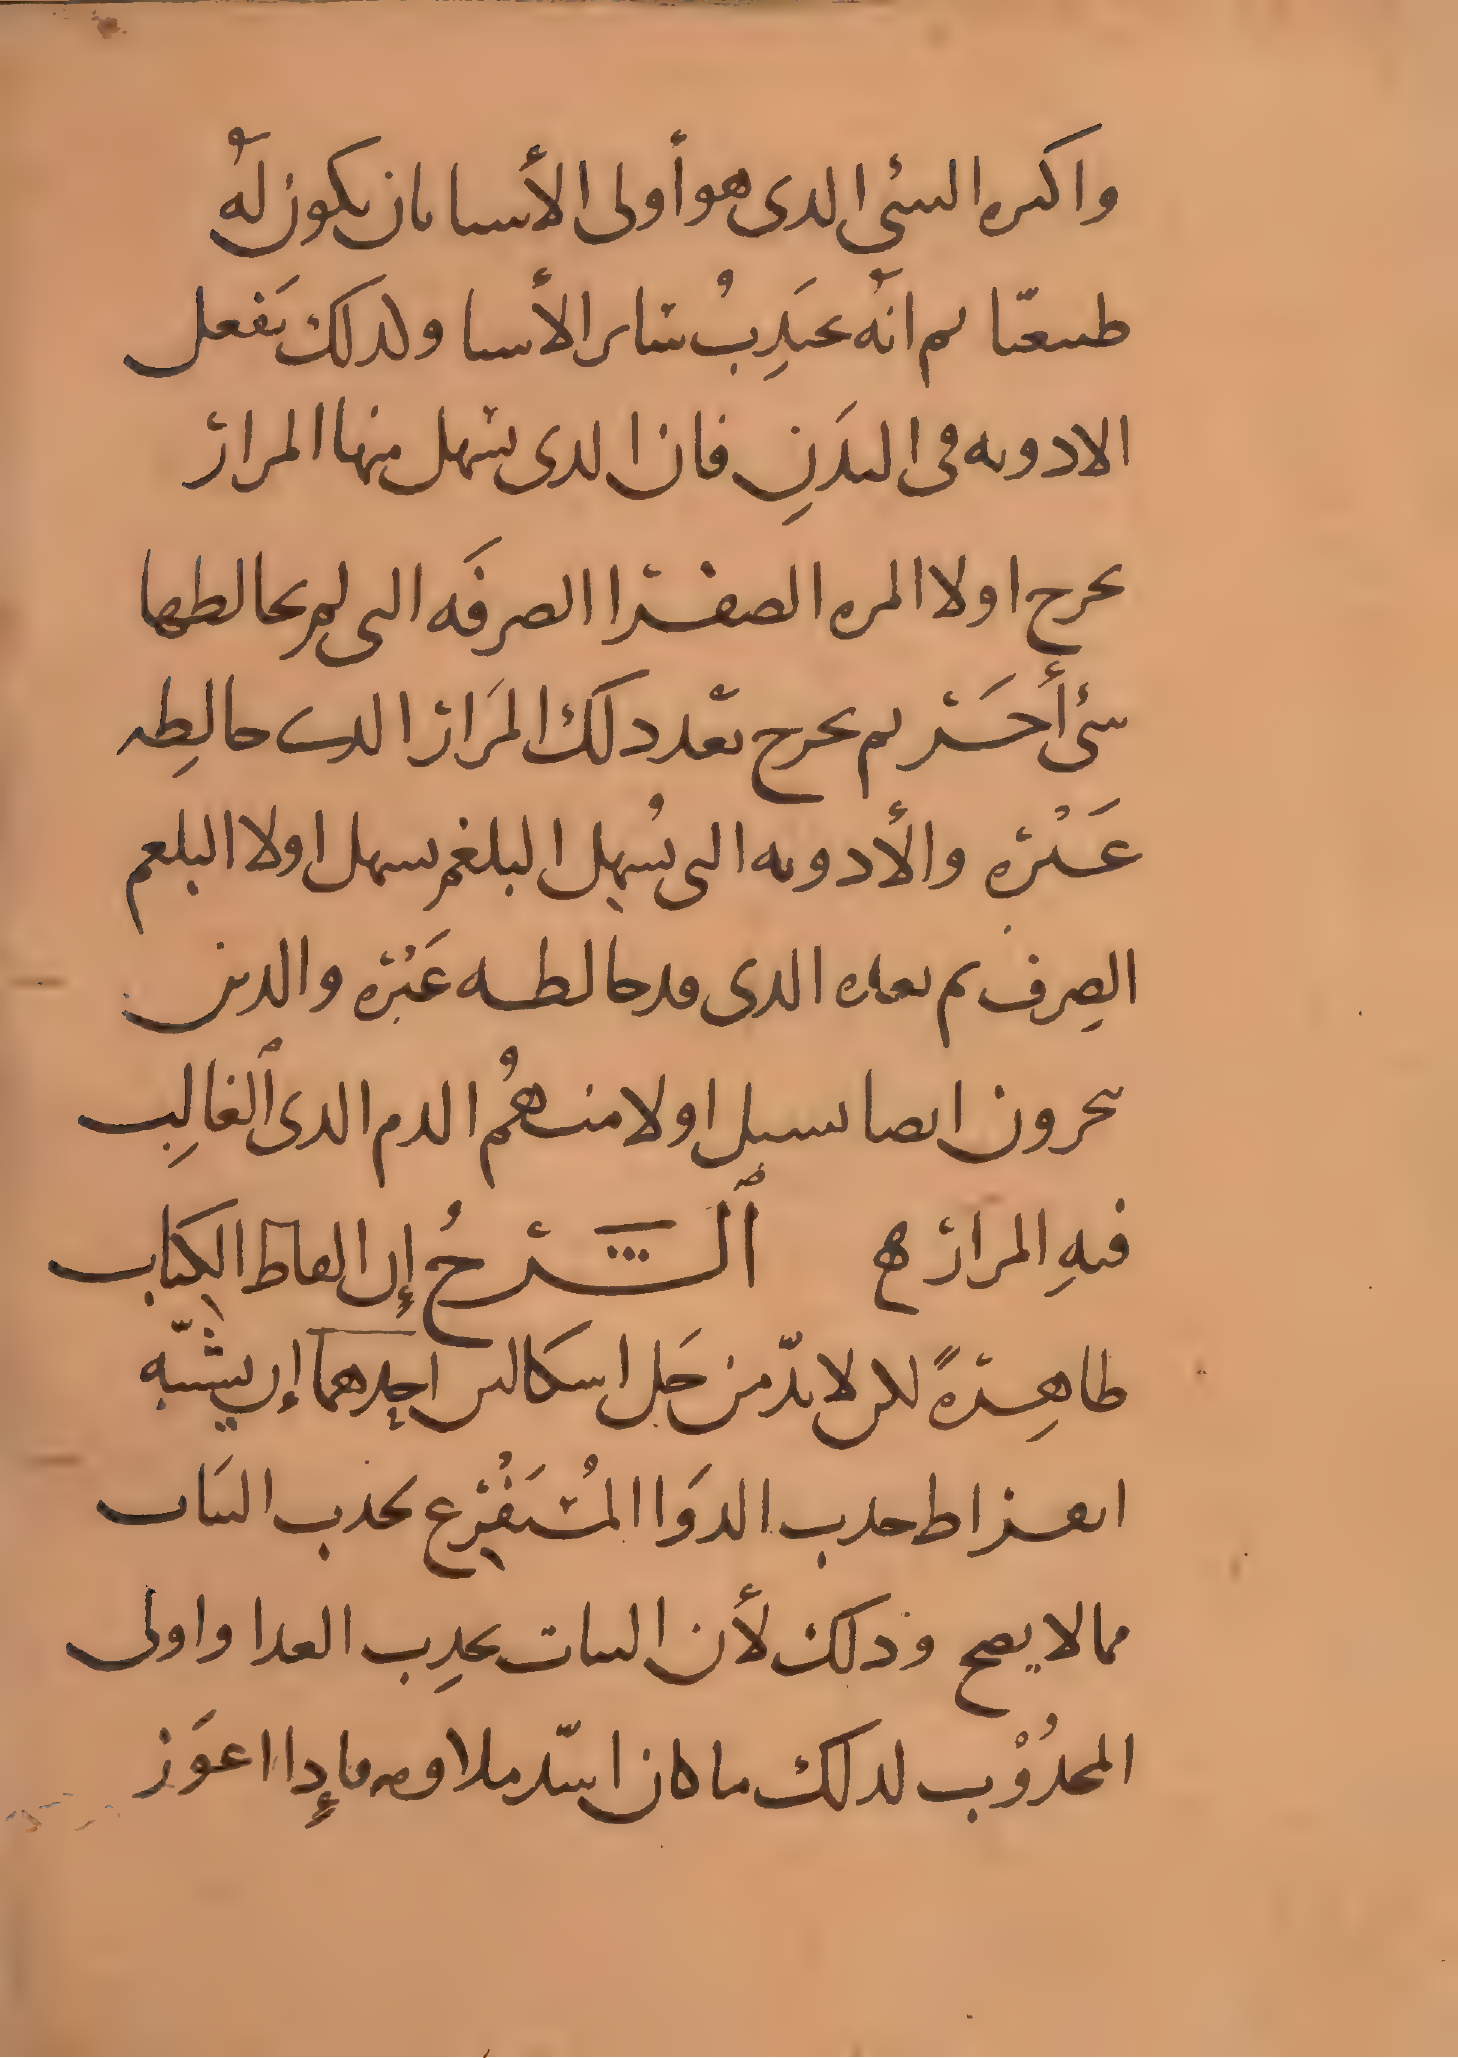 واكثره الشئ الذى هو أولى الأشيا بان يكون لهُ
طبيعيّا ثم انهُ يجتذِبُ سَائر الأشيا ولذلك تَفعل
الادويه فى البَدَنِ فان الذى يسْهل منها المرارَ
يخرج اولا المره الصفْرا الصرفَه التى لم يخالطها
شئ أَخَر ثم يخرج بعْد ذلك المَرار الذى خالطِه
غَيْرُه والأدويه التى تُسْهِل البلغم يسهل اولا البلغم
الصِرف ثم بعده الذى قد خالطه غَيْرُه والذين
ينحرون ايضا يسيل اولا منهُم الدم الذى ٱلغالِب
فيهِ المرار ه ٱلشَّرْحُ إن الفاظ الكِتاب
ظاهِرَةً لكن لا بدّ من حَل اشكالين احِدهما إن يشبّه
ابقراط جذب الدوَا المُسْتَفْرِغ بجذب النبَات
مما لا يصح وذلك لأن النبات يجذِب الغدا واولى
المجذُوْب لذلك ما كان اشدّ ملاومه فإِذا اعوَز